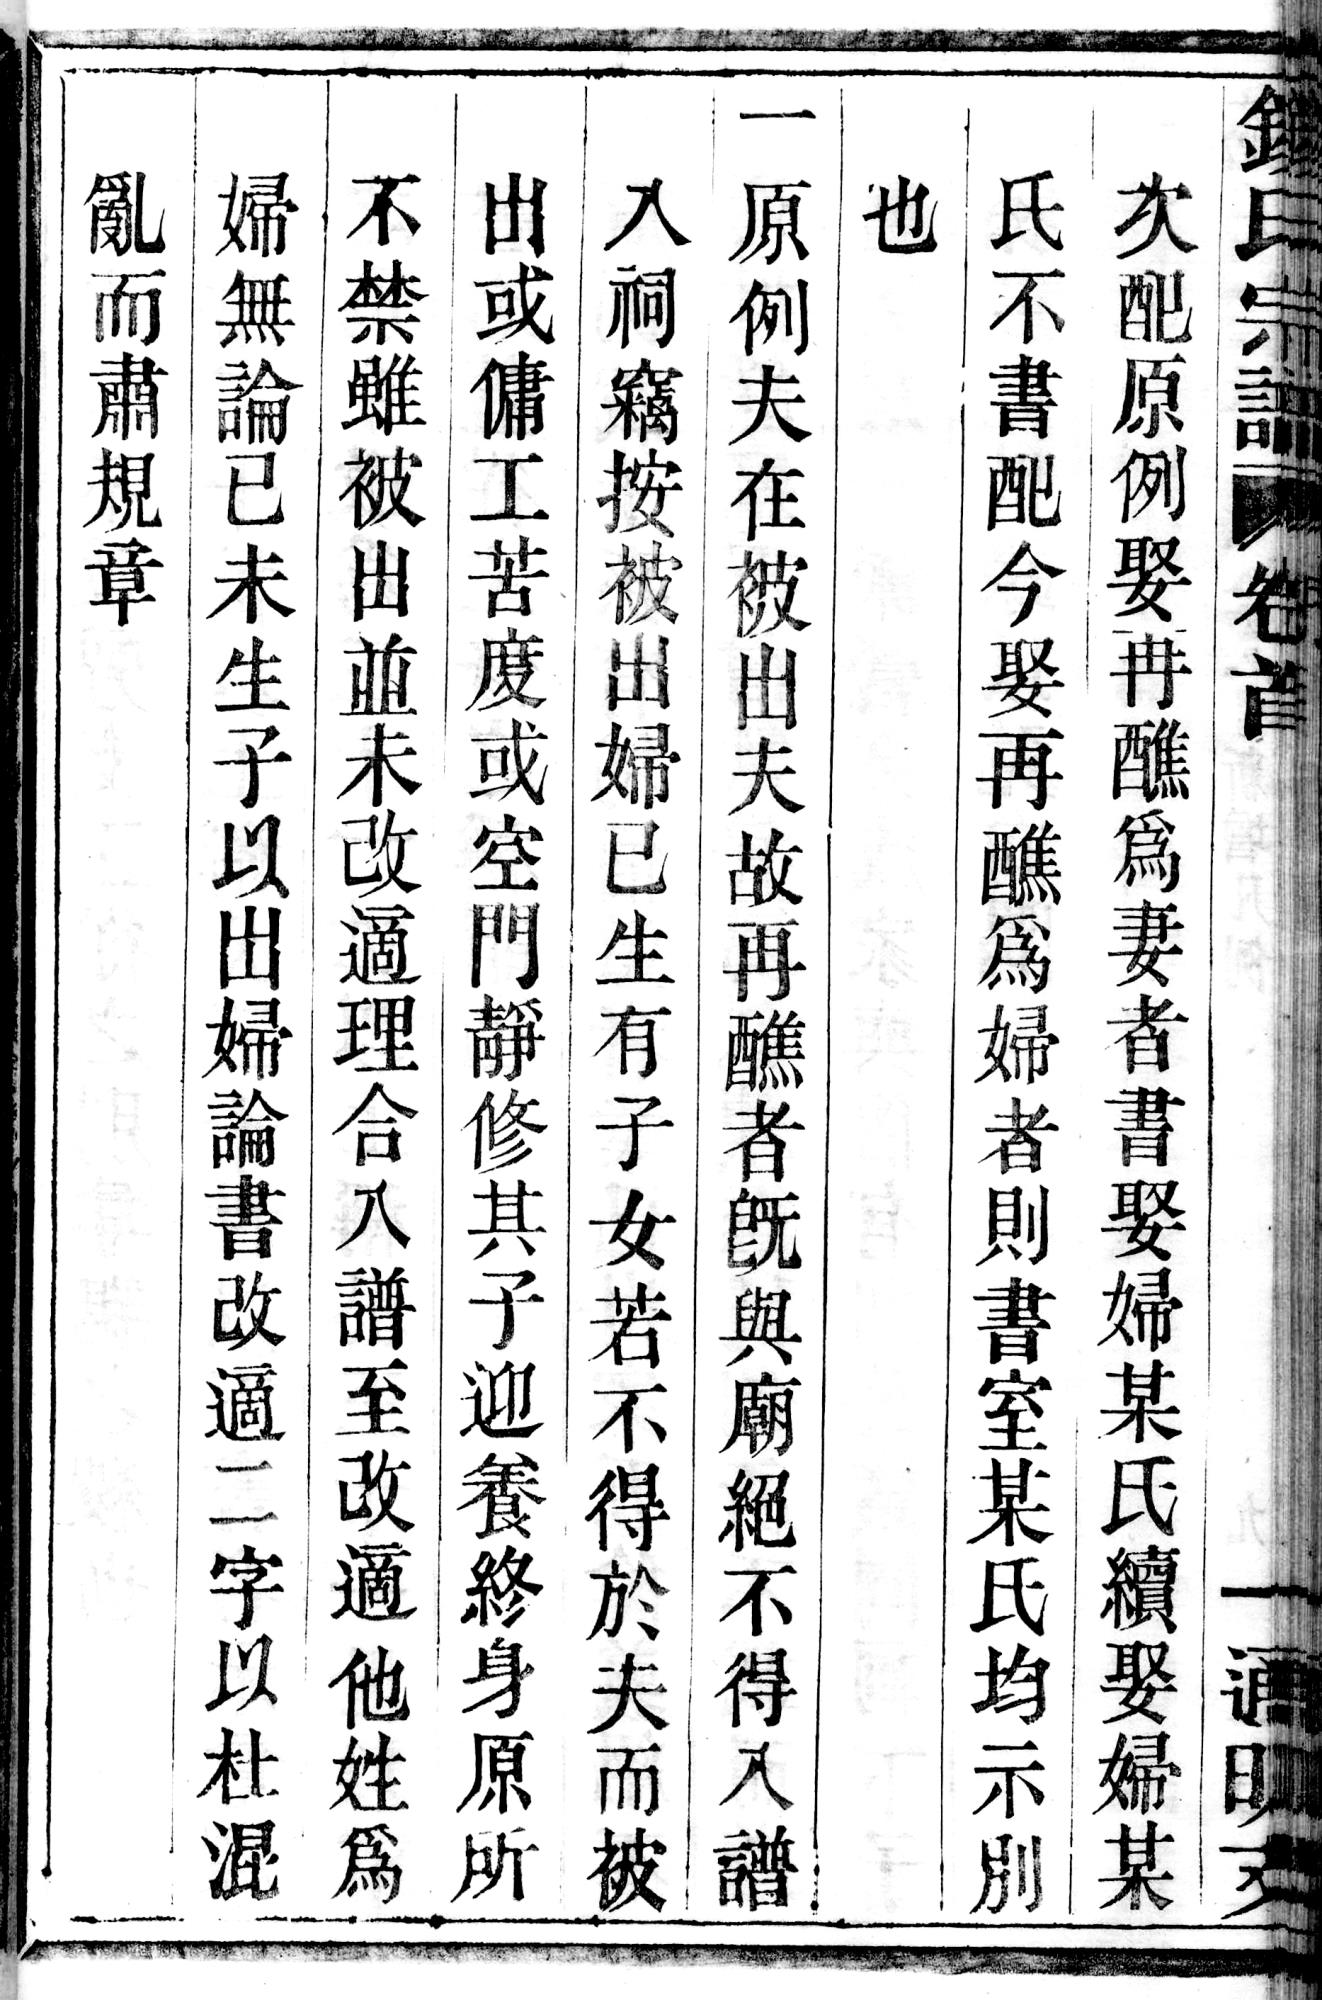 次配原例娶再醮爲妻者書娶婦某氏續娶婦某
氏不書配今娶再醮爲婦者則書室某氏均示別
也
一原例夫在被出夫故再醮者旣與廟絕不得入譜
入祠竊按被出婦已生有子女若不得於夫而被
出或傭工苦度或空門靜修其子迎養終身原所
不禁雖被出並未改適理合入譜至改適他姓爲
婦無論已未生子以出婦論書改適二字以杜混
亂而肅規章